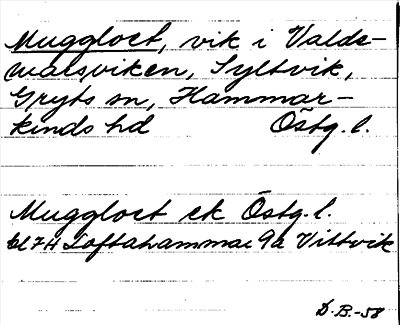 Muggloet, vik i Valde-
marsviken, Syltvik,
Gryts sn, Hammar-
kinds hd Östg. l.
Muggloet ek Östg. l.
bl 74 Loftahammar 9a Vittvik
D. B. -58